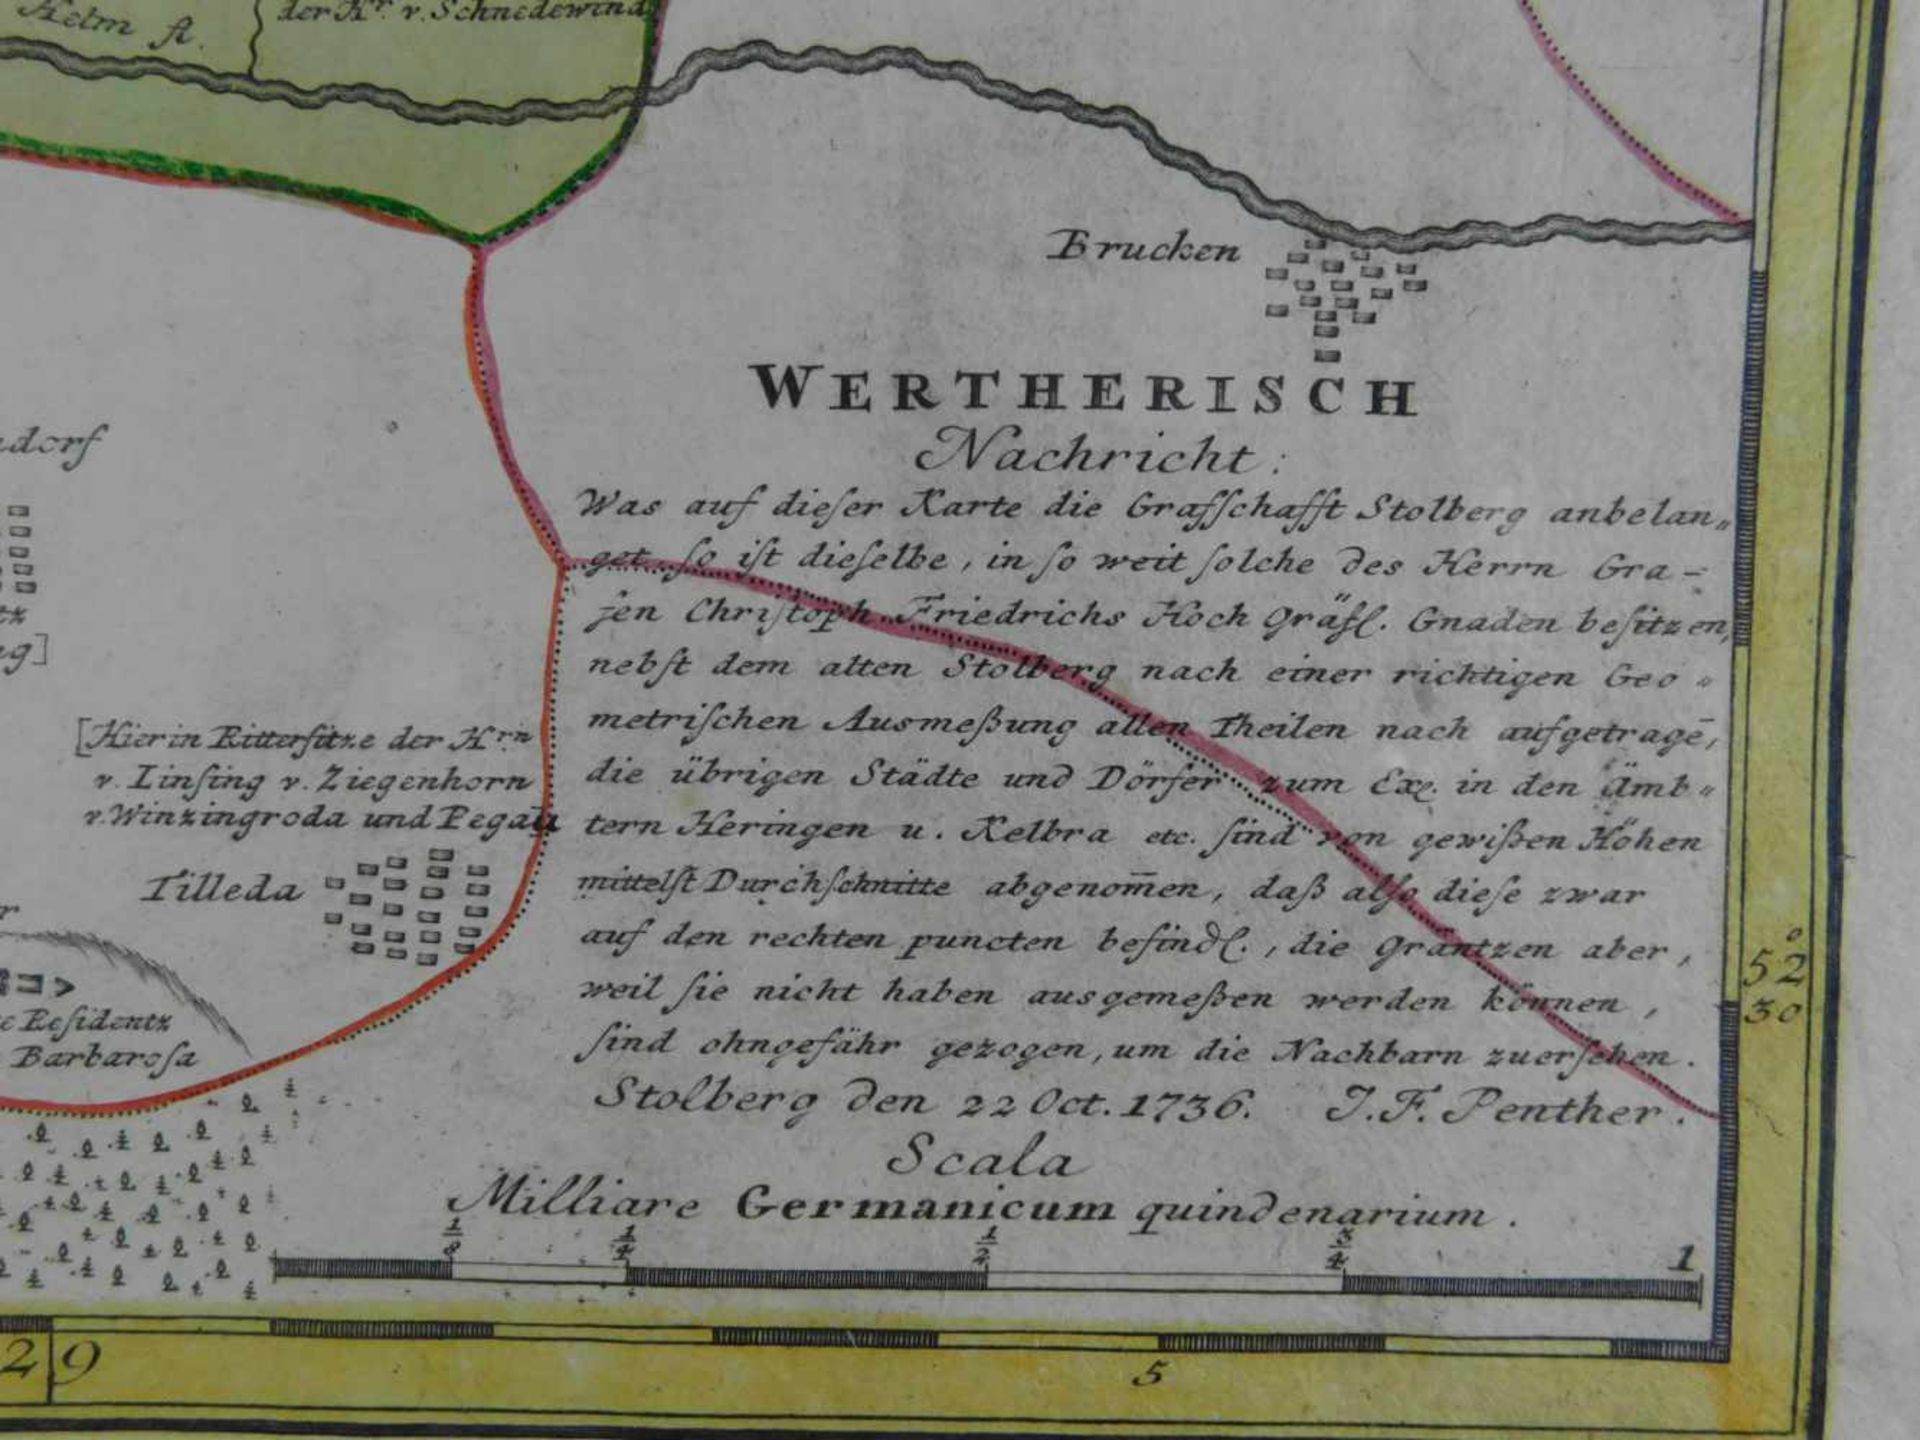 Helm fl.
der Hr. v. Schnedewind
Brucken
WERTHERISCH
dorf
Nachricht:
Was auf dieſer Karte die Grafſchafft Stolberg anbelan„
get, ſo iſt dieſelbe, in ſo weit ſolche des Herrn Gra-
fen Chriſtoph Friedrichs Hoch Gräfl. Gnaden beſitzen,
nebſt dem alten Stolberg nach einer richtigen Geo„
metriſchen Ausmeßung allen Theilen nach aufgetragē,
die übrigen Städte und Dörfer zum Exp. in den Ämb„
tern Heringen u. Kelbra etc. ſind von gewißen Höhen
mittelſt Durchſchnitte abgenom̅en, daß alſo dieſe zwar
auf den rechten puncten befindl., die Gräntzen aber,
weil ſie nicht haben ausgemeßen werden können,
ſind ohngefähr gezogen, um die Nachbarn zuerſehen.
Stolberg den 22 Oct. 1736. J. F. Penther.
[Hierin Ritterſitze der Hrn
v. Linſing v. Ziegenhorn
v. Winzingroda und Pegau
Tilleda
Reſidentz
Barbaroſa
Scala
Milliare Germanicum quindenarium.
1/8 1/4 1/2 3/4 1
52°
30
29
5